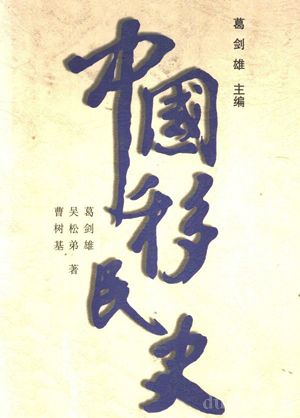 葛剑雄 主编
中國移民史
葛剑雄
吴松弟 著
曹树基
du